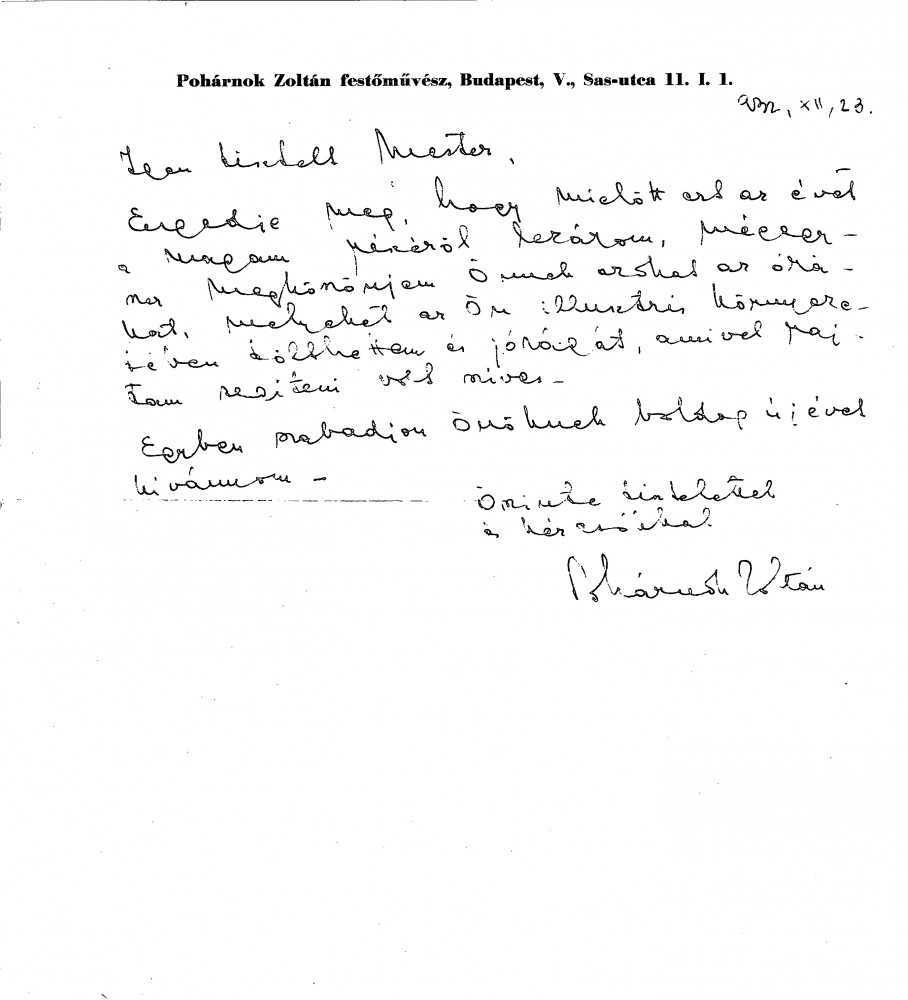 Pohárnok Zoltán festőművész, Budapest, V., Sas-utca 11. I. 1.
932, XII, 23.
Igen tisztelt Mester,
Engedje meg, hogy mielőtt ezt az évet
a magam részéről lezárom, mégegy-
szer megköszönjem Önnek azokat az órá-
kat, melyeket az Ön illusztris környeze-
tében tölthettem és jóságát, amivel raj-
tam segíteni volt szives –
Egyben szabadjon Önöknek boldog újévet
kivánnom –
Őszinte tisztelettel
és kézcsókkal
Pohárnok Zoltán